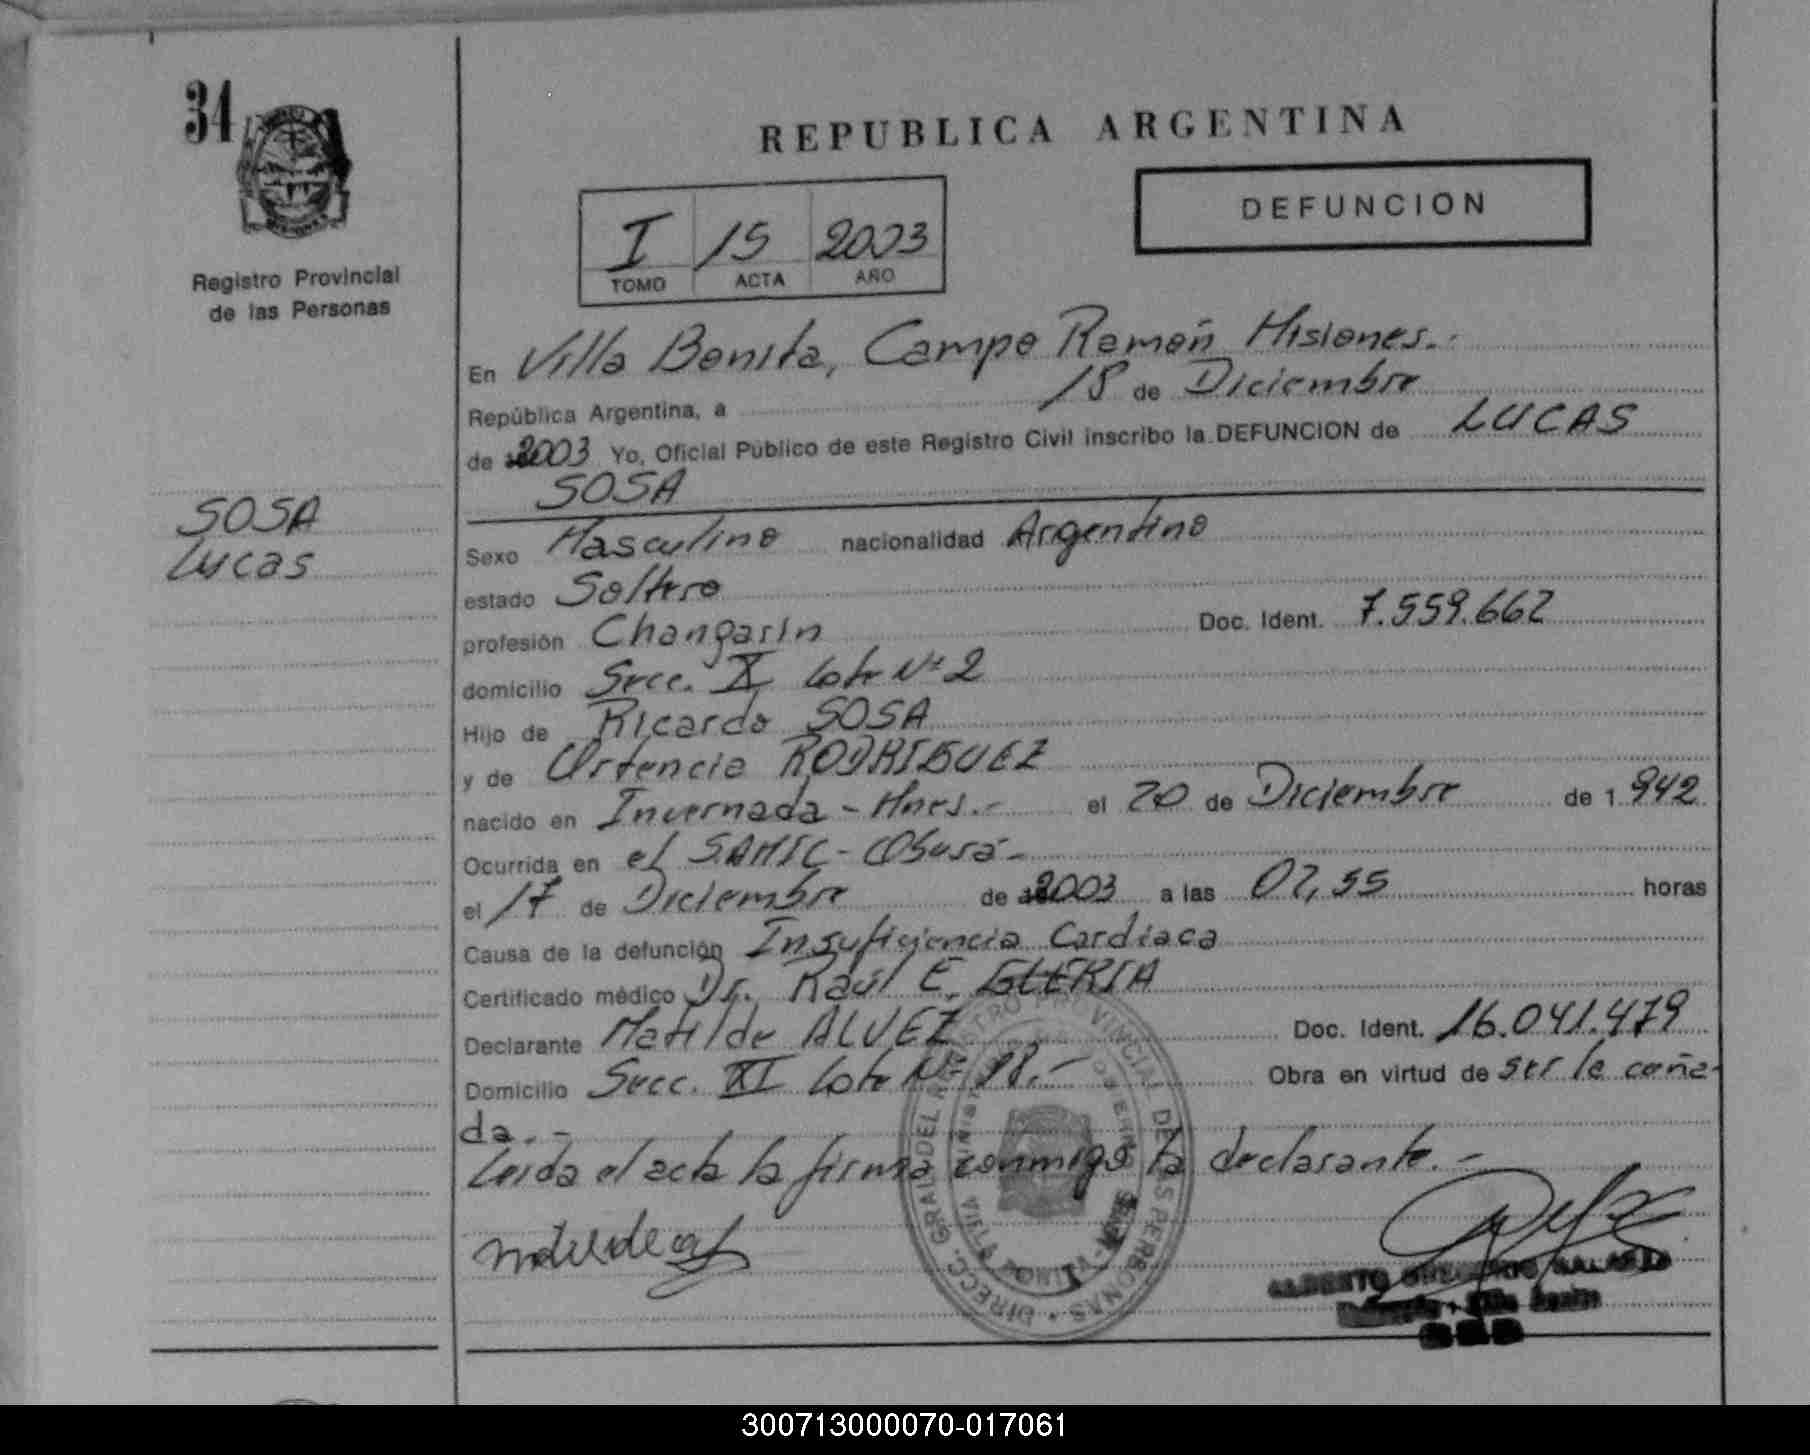 34
REPUBLICA ARGENTINA
DEFUNCION
I 15 2003
TOMO ACTA AÑO
Registro Provincial
de las Personas
En Villa Bonita, Campo Ramón Misiones.-
República Argentina, a 18 de Diciembre
de 2003 Yo, Oficial Público de este Registro Civil inscribo la DEFUNCION de LUCAS
SOSA
SOSA
Lucas
Sexo Masculino nacionalidad Argentino
estado Soltero
profesión Changarín Doc. Ident. 7.559.662
domicilio Secc. X Lote Nº 2
Hijo de Ricardo SOSA
y de Ortencia RODRIGUEZ
nacido en Invernada - Mnes.- el 20 de Diciembre de 1.942
Ocurrida en el SAMIC - Oberá-
el 17 de Diciembre de 2003 a las 02,55 horas
Causa de la defunción Insuficiencia Cardíaca
Certificado médico Dr. Raúl E.
Declarante Matilde ALVEZ Doc. Ident. 16.041.479
Domicilio Secc. XI Lote Nº 98.- Obra en virtud de ser la cuña-
da.-
Leída el acta la firma conmigo la declarante.-
DIRECC. GRAL. DEL REGISTRO PROVINCIAL DE LAS PERSONAS
ALBERTO
300713000070-017061